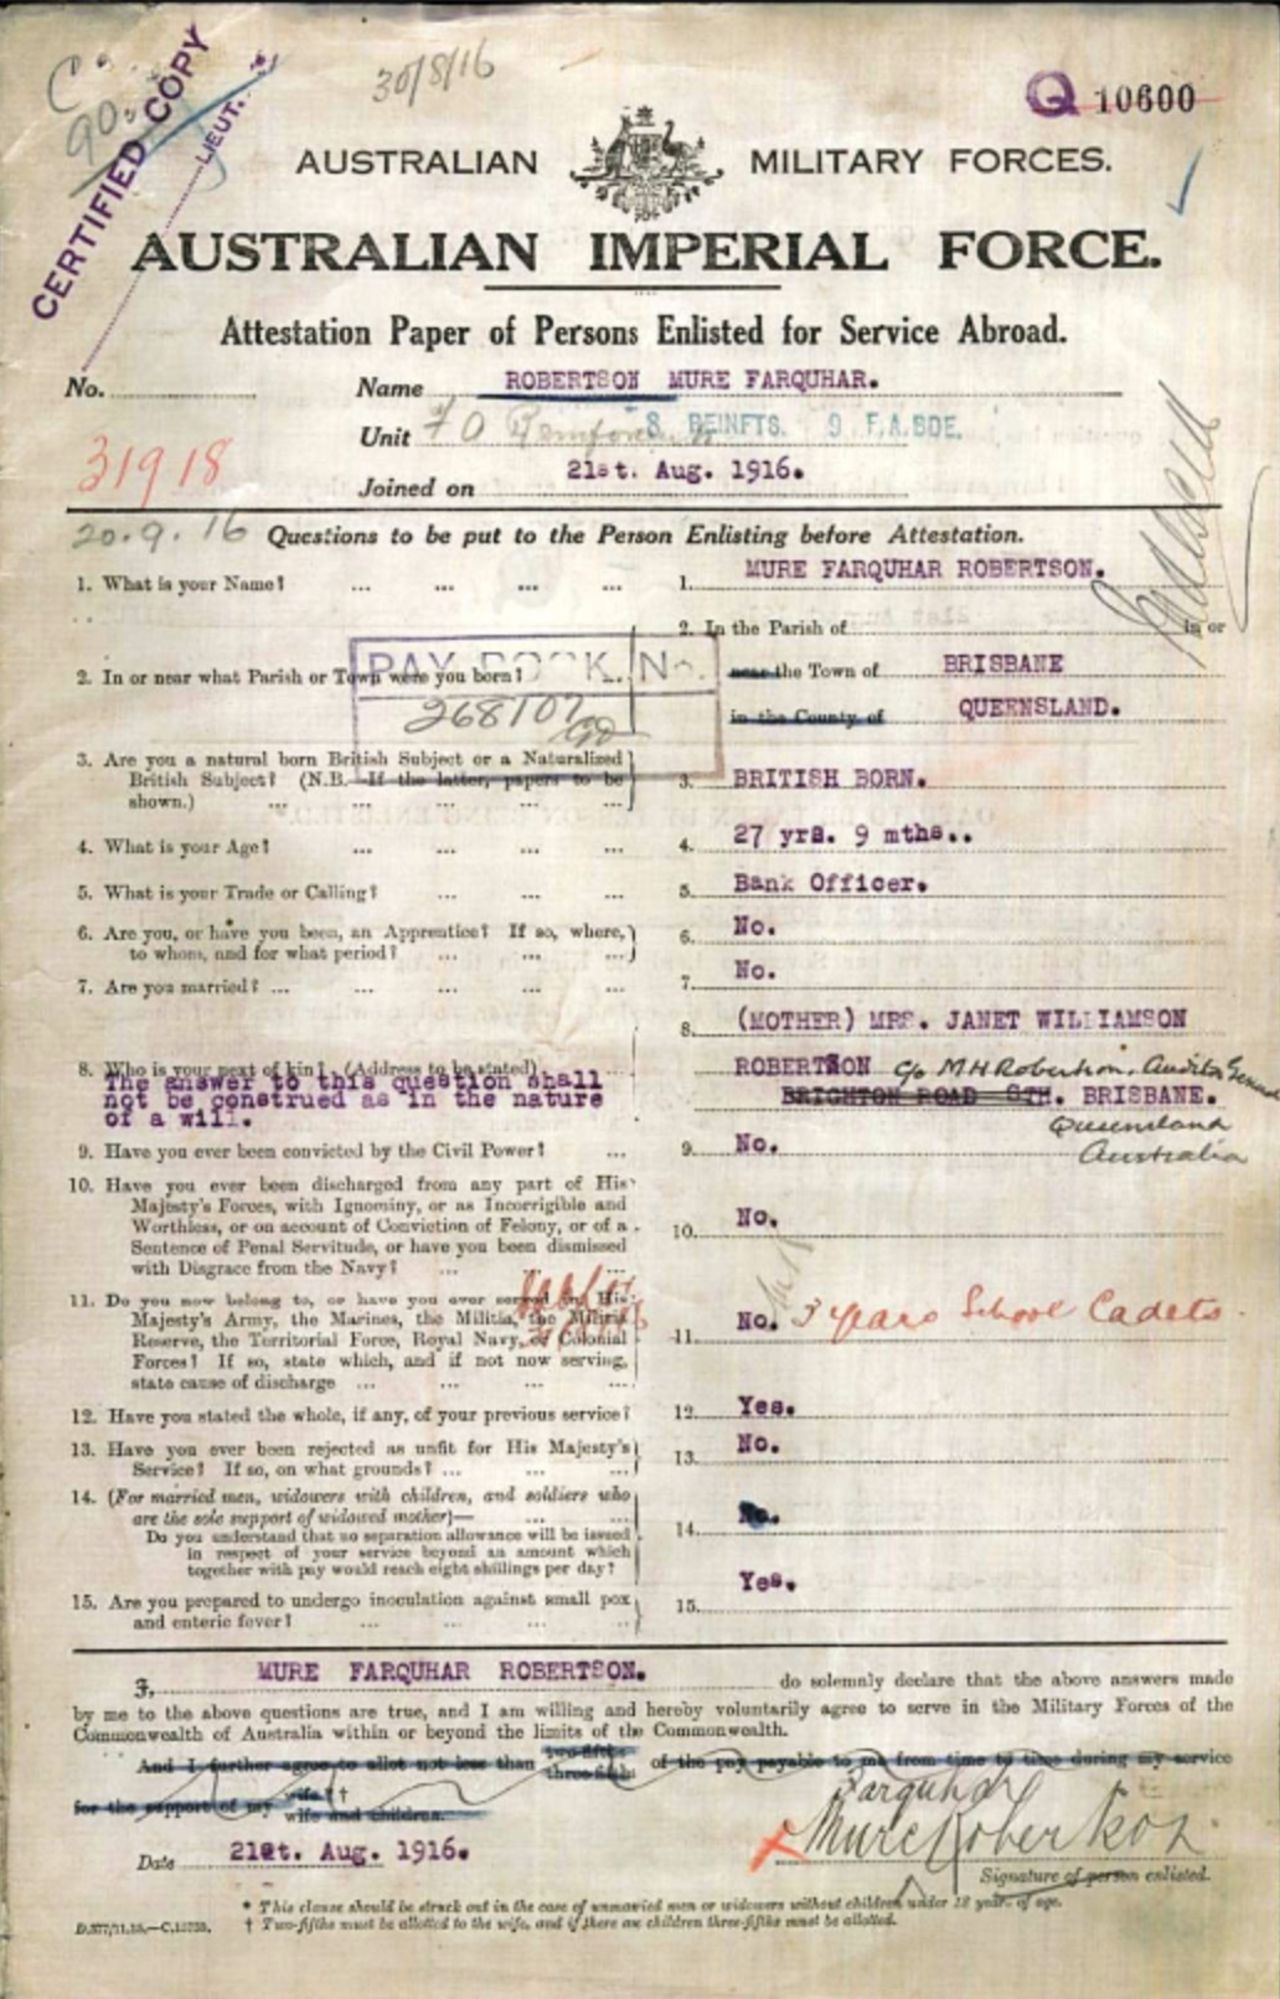 30/8/16
Q 10600
CERTIFIED COPY
LIEUT.
AUSTRALIAN MILITARY FORCES.
AUSTRALIAN IMPERIAL FORCE.
Attestation Paper of Persons Enlisted for Service Abroad.
No. Name ROBERTSON MURE FARQUHAR.
Unit 8 REINFTS. 9 F.A.BDE.
31918
Joined on 21st. Aug. 1916.
20.9.16 Questions to be put to the Person Enlisting before Attestation.
1. What is your Name? ... ... ... ... 1. MURE FARQUHAR ROBERTSON.
2. In the Parish of in or
2. In or near what Parish or Town were you born? near the Town of BRISBANE
in the County of QUEENSLAND.
PAY BOOK No.
268107
3. Are you a natural born British Subject or a Naturalized
British Subject? (N.B.—If the latter, papers to be
shown.) ... ... ... ... 3. BRITISH BORN.
4. What is your Age? ... ... ... ... 4. 27 yrs. 9 mths..
5. What is your Trade or Calling? ... ... ... 5. Bank Officer.
6. Are you, or have you been, an Apprentice? If so, where,
to whom, and for what period? ... ... ... 6. No.
7. Are you married? ... ... ... ... ... 7. No.
8. Who is your next of kin? (Address to be stated)
The answer to this question shall
not be construed as in the nature
of a will.
8. (MOTHER) MRS. JANET WILLIAMSON
ROBERTSON c/o M H Robertson, Auditor General
BRIGHTON ROAD STH. BRISBANE.
Queensland
Australia
9. Have you ever been convicted by the Civil Power? ... 9. No.
10. Have you ever been discharged from any part of His
Majesty's Forces, with Ignominy, or as Incorrigible and
Worthless, or on account of Conviction of Felony, or of a
Sentence of Penal Servitude, or have you been dismissed
with Disgrace from the Navy? ... ... ... 10. No.
11. Do you now belong to, or have you ever served in, His
Majesty's Army, the Marines, the Militia, the Militia
Reserve, the Territorial Force, Royal Navy, or Colonial
Forces? If so, state which, and if not now serving,
state cause of discharge ... ... ... ... 11. No. 3 years School Cadets.
12. Have you stated the whole, if any, of your previous service? 12. Yes.
13. Have you ever been rejected as unfit for His Majesty's
Service? If so, on what grounds? ... ... ... 13. No.
14. (For married men, widowers with children, and soldiers who
are the sole support of widowed mother)— ... ...
Do you understand that no separation allowance will be issued
in respect of your service beyond an amount which
together with pay would reach eight shillings per day? 14. No.
15. Are you prepared to undergo inoculation against small pox
and enteric fever? ... ... ... ... 15. Yes.
I, MURE FARQUHAR ROBERTSON. do solemnly declare that the above answers made
by me to the above questions are true, and I am willing and hereby voluntarily agree to serve in the Military Forces of the
Commonwealth of Australia within or beyond the limits of the Commonwealth.
And I further agree to allot not less than two-fifths three-fifths of the pay payable to me from time to time during my service
for the support of my wife*† wife and children.
Farquhar
Mure Robertson
Date 21st. Aug. 1916.
Signature of person enlisted.
* This clause should be struck out in the case of unmarried men or widowers without children under 18 years of age.
† Two-fifths must be allotted to the wife, and if there are children three-fifths must be allotted.